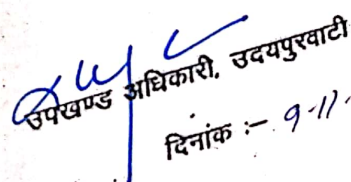 उपखण्ड अधिकारी, उदयपुरवाटी
दिनांक :- 9-11-